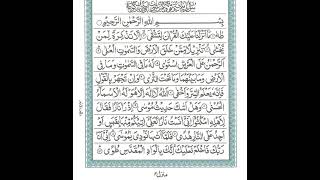 بِسْمِ اللهِ الرَّحْمٰنِ الرَّحِيْمِ
طٰهٰ مَآ اَنْزَلْنَا عَلَيْكَ الْقُرْاٰنَ لِتَشْقٰٓى اِلَّا تَذْكِرَةً لِّمَنْ
يَّخْشٰى تَنْزِيْلًا مِّمَّنْ خَلَقَ الْاَرْضَ وَالسَّمٰوٰتِ الْعُلٰى
اَلرَّحْمٰنُ عَلَى الْعَرْشِ اسْتَوٰى لَهٗ مَا فِى السَّمٰوٰتِ وَمَا فِى
الْاَرْضِ وَمَا بَيْنَهُمَا وَمَا تَحْتَ الثَّرٰى وَاِنْ تَجْهَرْ بِالْقَوْلِ
فَاِنَّهٗ يَعْلَمُ السِّرَّ وَاَخْفٰى اَللهُ لَآ اِلٰهَ اِلَّا هُوَ لَهُ الْاَسْمَآءُ
الْحُسْنٰى وَهَلْ اَتٰىكَ حَدِيْثُ مُوْسٰى اِذْ رَاٰ نَارًا فَقَالَ
لِاَهْلِهِ امْكُثُوْٓا اِنِّىْٓ اٰنَسْتُ نَارًا لَّعَلِّىْٓ اٰتِيْكُمْ مِّنْهَا بِقَبَسٍ اَوْ
اَجِدُ عَلَى النَّارِ هُدًى فَلَمَّآ اَتٰىهَا نُوْدِىَ يٰمُوْسٰى اِنِّىْٓ اَنَا
رَبُّكَ فَاخْلَعْ نَعْلَيْكَ اِنَّكَ بِالْوَادِ الْمُقَدَّسِ طُوًى